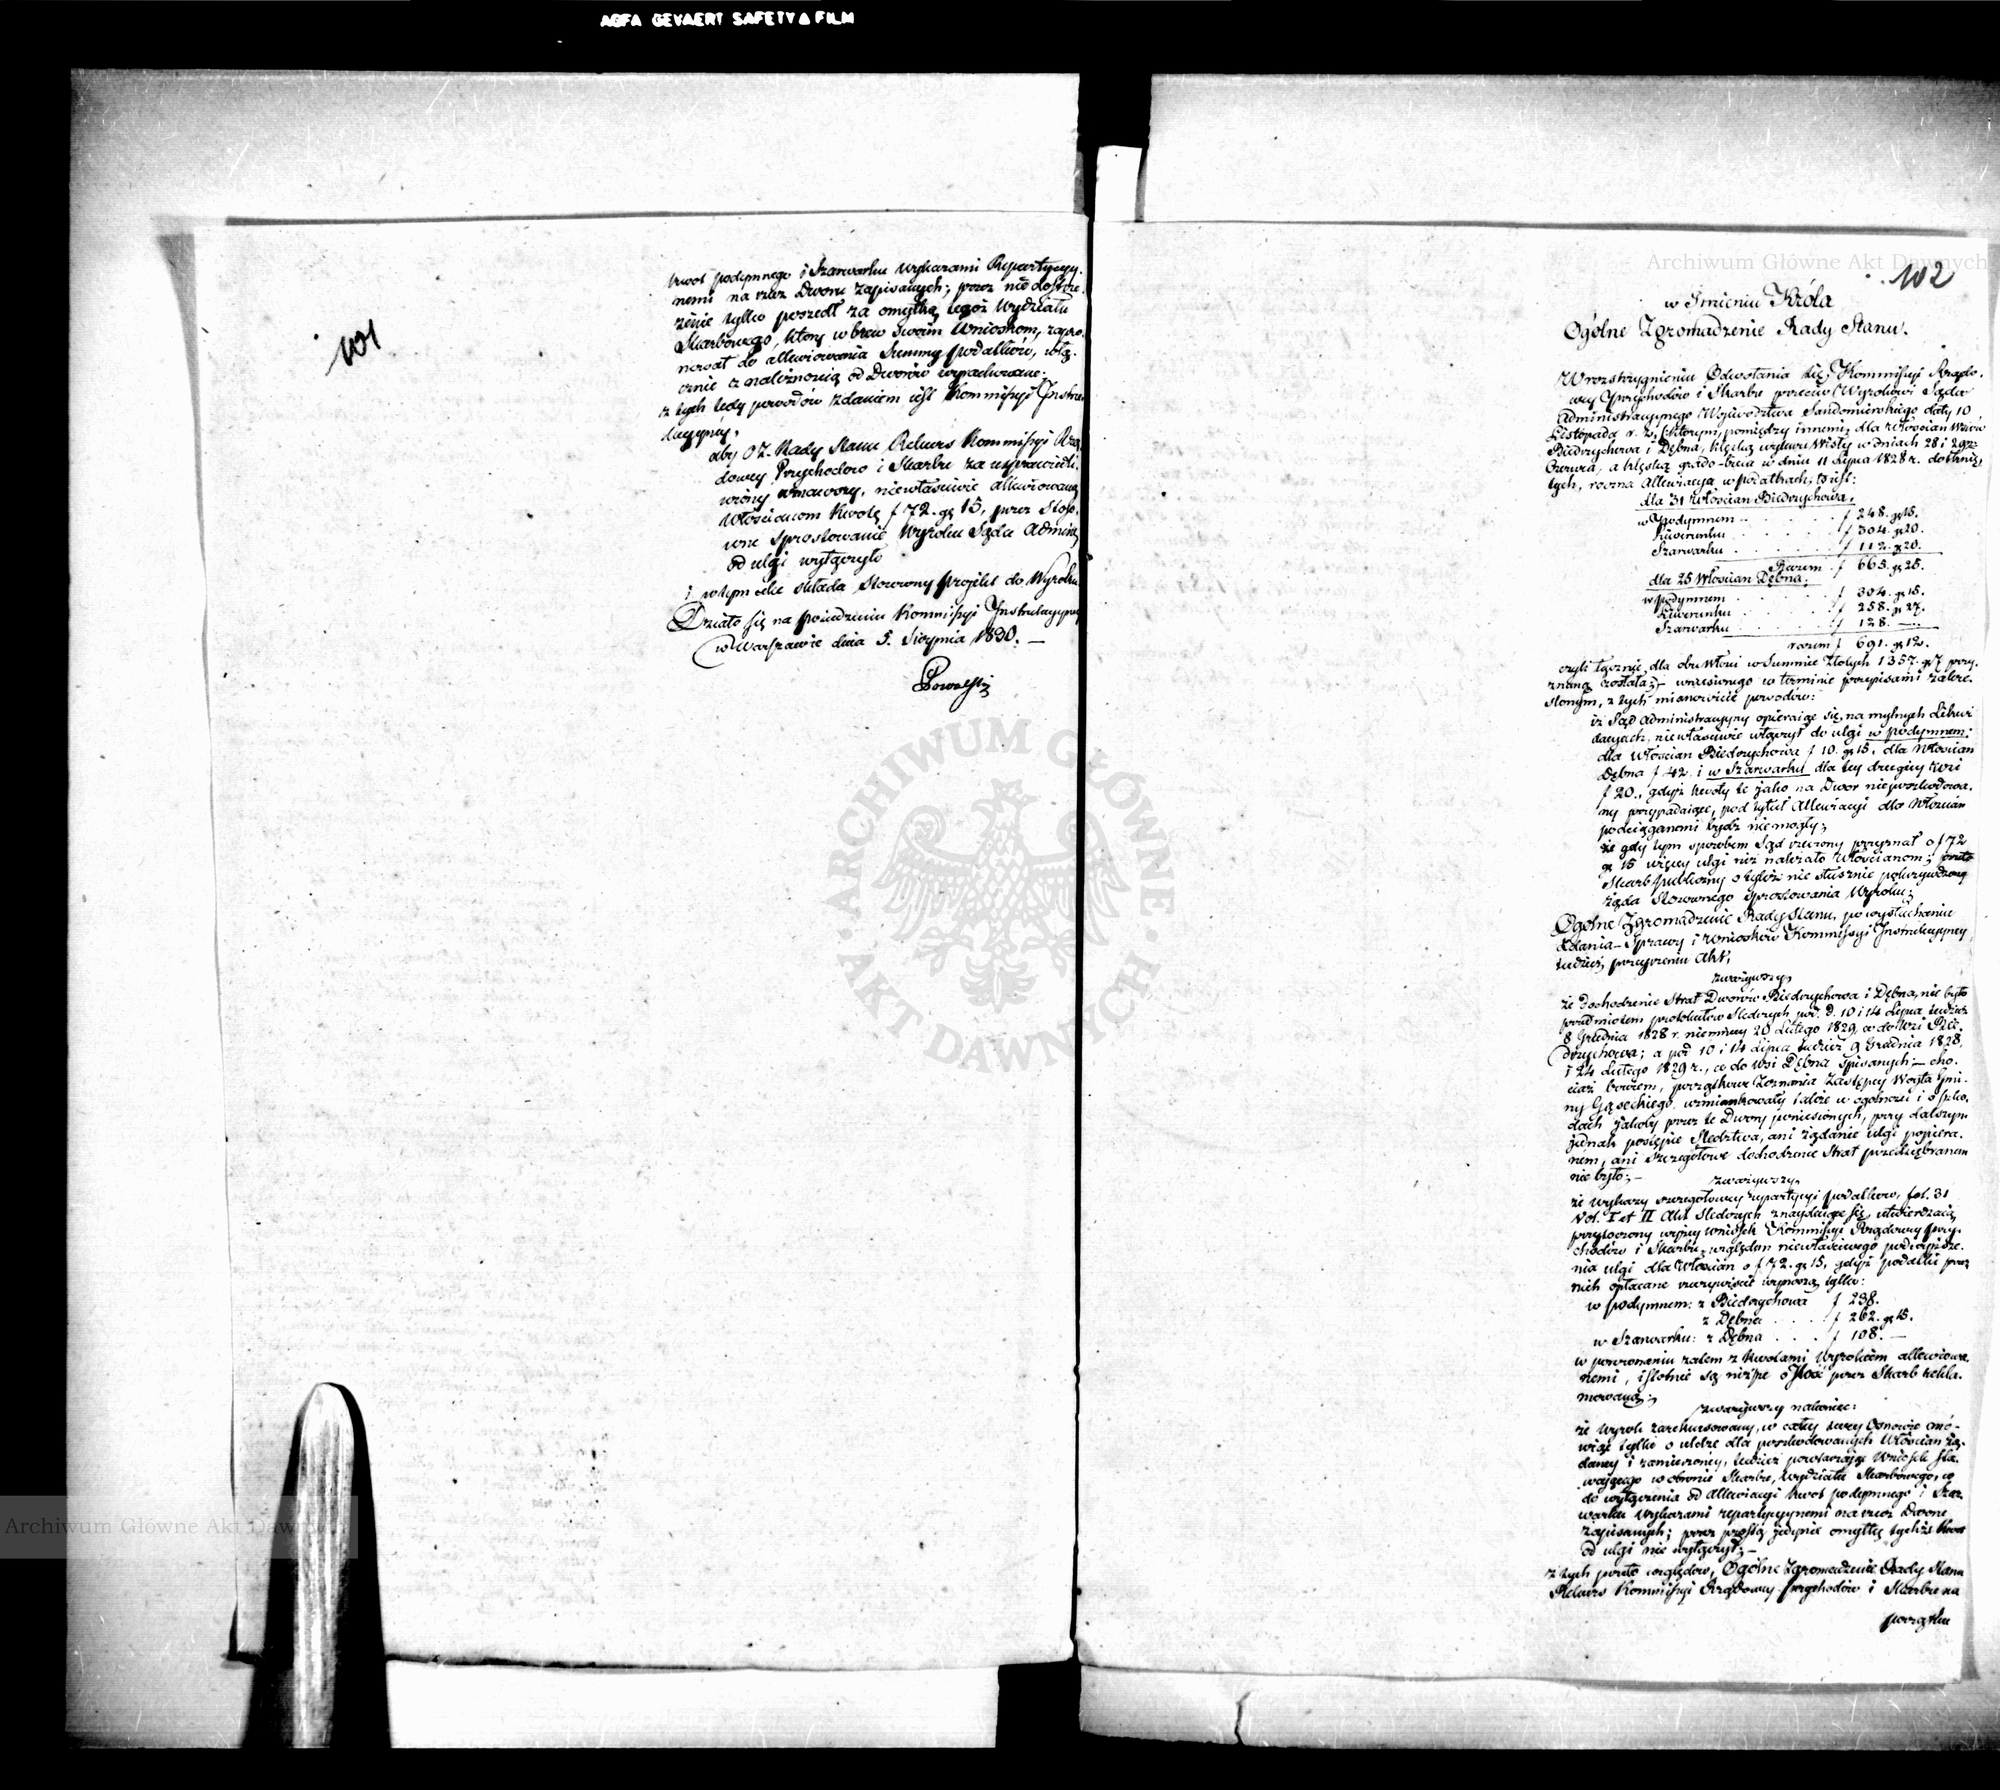 AGFA GEVAERT SAFETY FILM
101
kwot podymnego i Szarwarku wykazami Repartycyy-
nemi na rzecz Dworu zapisanych; przez niedostrze-
żenie tylko poszedł za omyłką tegoż Wydziału
Skarbowego, który wbrew swoim Wnioskom, zapro-
nował do allewiowania Summy podatków, włą-
cznie z należnością od Dworów wyrachowane.
z tych tedy powodów zdaniem iest Kommissyi Instru-
kcyyney,
aby OZ. Rady Stanu Rekurs Kommissyi Rzą-
dowey Przychodow i Skarbu za usprawiedli-
wiony uznawszy, niewłaściwie allewiowaną
Włościanom kwotę f 72. gr 15, przez stoso-
wne sprostowanie Wyroku Sądu Admin:
od ulgi wyłączyło
i w tym celu składa stosowny projekt do Wyroku
Działo się na posiedzeniu Kommissyi Instrukcyyney
w Warszawie dnia 5. Sierpnia 1830. —
102
w Imieniu Króla
Ogólne Zgromadzenie Rady Stanu.
W rozstrzygnieniu Odwołania się Kommissyi Rządo-
wey Przychodów i Skarbu przeciw Wyrokowi Sądu
Administracyynego Województwa Sandomirskiego daty 10
Listopada r. z., którym pomiędzy innemi, dla Włościan Wsiów
Biedrzychowa i Dębna, klęską wylewu Wisły w dniach 28 i 29
Czerwca, a klęską grado-bicia w dniu 11 Lipca 1828 r. dotknię-
tych, roczna Allewiacya w podatkach, to iest:
dla 31 Włościan Biedrzychowa,
w Podymnem . . . . f 248. gr 15.
Liwerunku . . . . f 304. gr 20.
Szarwarku . . . . f 112. gr 20.
Razem f 665. gr 25.
dla 25 Włościan Dębna;
w podymnem . . . . f 304. gr 15.
Liwerunku . . . . f 258. gr 27.
Szarwarku . . . . f 128. —
razem f 691. gr 12.
czyli łącznie dla obu Wsi w Summie Złotych 1357. gr 7 przy-
znaną została; — wniesionego w terminie przepisami zakre-
ślonym, z tych mianowicie powodów:
iż Sąd Administracyyny opieraiąc się na mylnych Likwi
dacyach, niewłaściwie włączył do ulgi w podymnem:
dla Włościan Biedrzychowa f 10. gr 15, dla Włościan
Dębna f 42. i w Szarwarku dla tey drugiey wsi
f 20., gdyż kwoty te jako na Dwor nieposzkodowa-
ny przypadaiące, pod tytuł Allewiacyi dla Włościan
podciąganemi bydź nie mogły;
że gdy tym sposobem Sąd rzeczony przyznał o f 72
gr 15 więcey ulgi niż należało Włościanom; przeto
Skarb publiczny o tyleż nie słusznie pokrzywdzony
żąda stosownego sprostowania Wyroku;
Ogólne Zgromadzenie Rady Stanu, po wysłuchaniu
Zdania-Sprawy i Wniosków Kommissyi Instrukcyyney
tudzież, przeyrzeniu Akt,
zważywszy,
że dochodzenie Strat Dworów Biedrzychowa i Dębna, nie było
przedmiotem protokułów śledczych pod. d. 10 i 14 Lipca tudzież
8 Grudnia 1828 r. niemniey 20 Lutego 1829, co do Wsi Bie-
drzychowa; a pod 10 i 14 Lipca tudzież 9 Grudnia 1828,
i 24 Lutego 1829 r., co do wsi Dębna spisanych; — cho-
ciaż bowiem, początkowe Zeznania Zastępcy Wóyta Gmi-
ny Gąseckiego, wzmiankowały także w ogólności i o szko-
dach jakoby przez te Dwory poniesionych, przy dalszym
jednak postępie Śledztwa, ani żądanie ulgi popiera-
nem, ani szczegółowe dochodzenie Strat przedsiębranem
nie było; —
zważywszy,
że wykazy szczegółowey repartycyi podatków, fol. 31
Vol. I et II Akt śledczych znayduiące się, utwierdzaią
przytoczony wyżey wniosek Kommissyi Rządowey Przy-
chodów i Skarbu, względem niewłaściwego podwyższe-
nia ulgi dla Włościan o f 72. gr 15, gdyż podatki przez
nich opłacane rzeczywiście wynoszą tylko:
w podymnem: z Biedrzychowa f 238.
z Dębna . . . . f 262. gr 15.
w Szarwarku: z Dębna . . . f 108. —
w porównaniu zatem z kwotami Wyrokiem allewiowa-
nemi, istotnie są niższe o Ilość przez Skarb rekla-
mowaną; —
zważywszy nakoniec:
że Wyrok zarekursowany, w całey swey Osnowie mó-
wiąc tylko o uldze dla poszkodowanych Włościan żą-
daney i zamierzoney, tudzież powtarzaiąc Wniosek sta-
waiącego w obronie Skarbu, Wydziału Skarbowego, co
do wyłączenia od Allewiacyi kwot podymnego i Szar-
warku Wykazami repartycyynemi na rzecz Dworu
zapisanych; przez prostą jedynie omyłkę tychże kwot
od ulgi nie wyłączył; —
z tych przeto względów, Ogólne Zgromadzenie Rady Stanu
Rekurs Kommissyi Rządowey Przychodów i Skarbu na
początku
Archiwum Główne Akt Dawnych
Archiwum Główne Akt Dawnych
ARCHIWUM GŁÓWNE AKT DAWNYCH